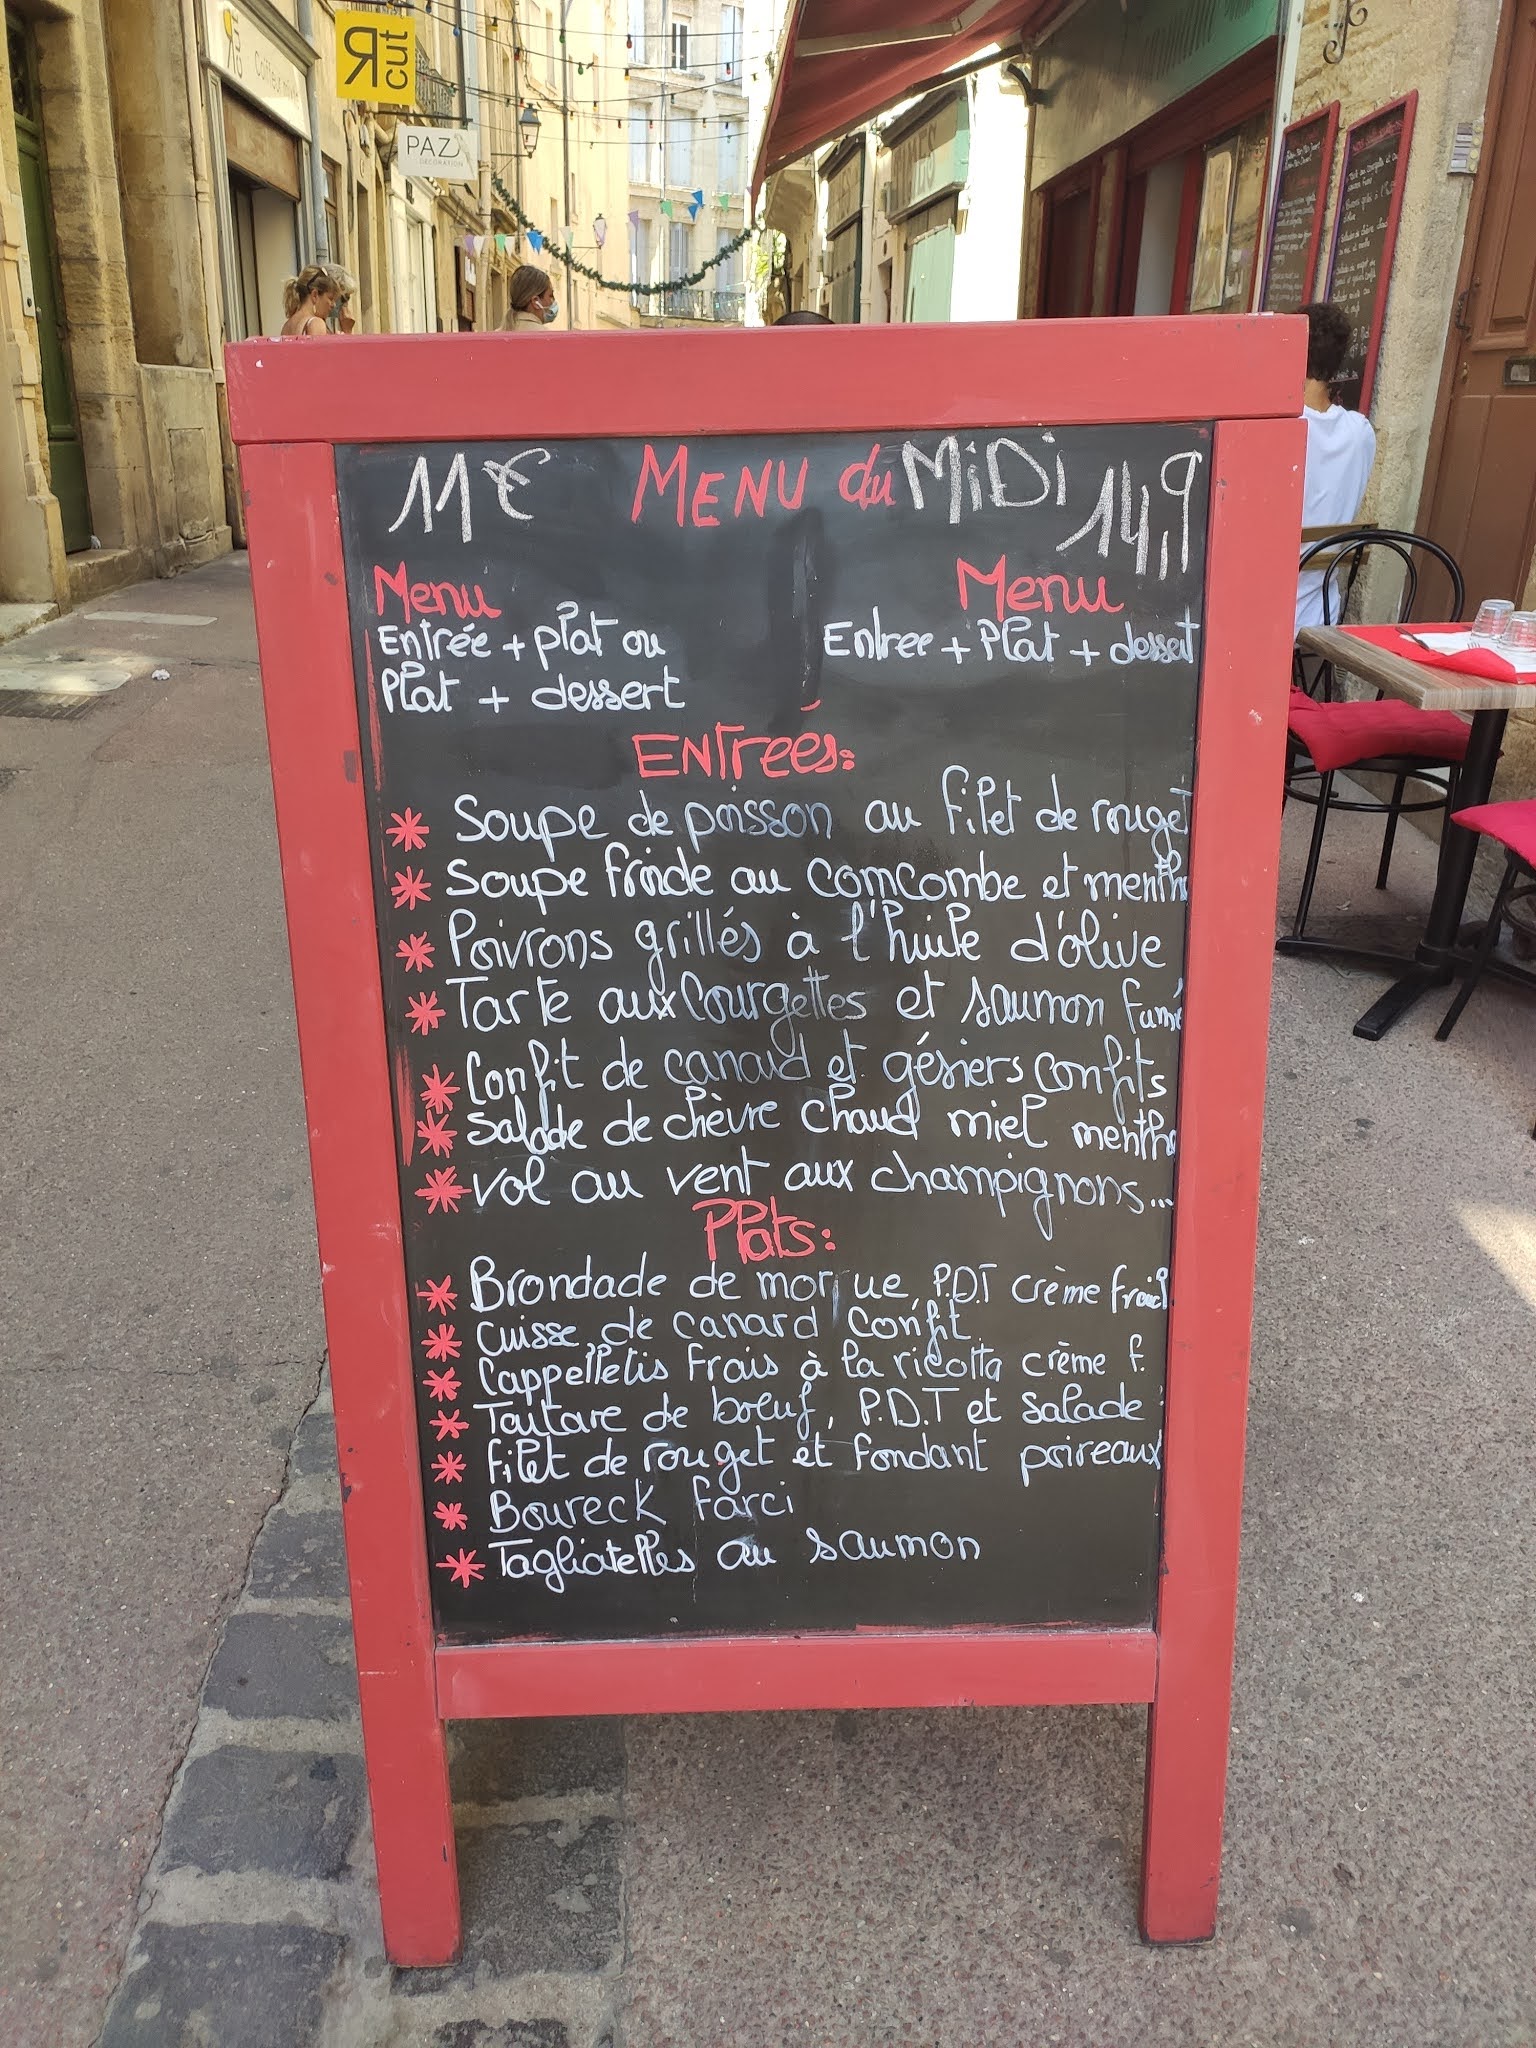 cut
PAZ
DECORATION
11€ MENU du MiDi 14,9
Menu
Entrée + plat ou
Plat + dessert
Menu
Entree + Plat + dessert
ENTreés:
Soupe de poisson au filet de rouget
Soupe froide au comcombe et menthe
Poivrons grillés à l'huile d'olive
Tarte aux Courgettes et saumon fumé
Confit de canard et gésiers confits
Salade de chèvre chaud miel menthe
Vol au vent aux champignons...
Plats:
Brondade de morue, P.D.T crème fraich
Cuisse de canard Confit
Cappelletis frais à la ricotta crème f.
Tartare de boeuf, P.D.T et Salade
filet de rouget et fondant poireaux
Boureck farci
Tagliatelles au saumon